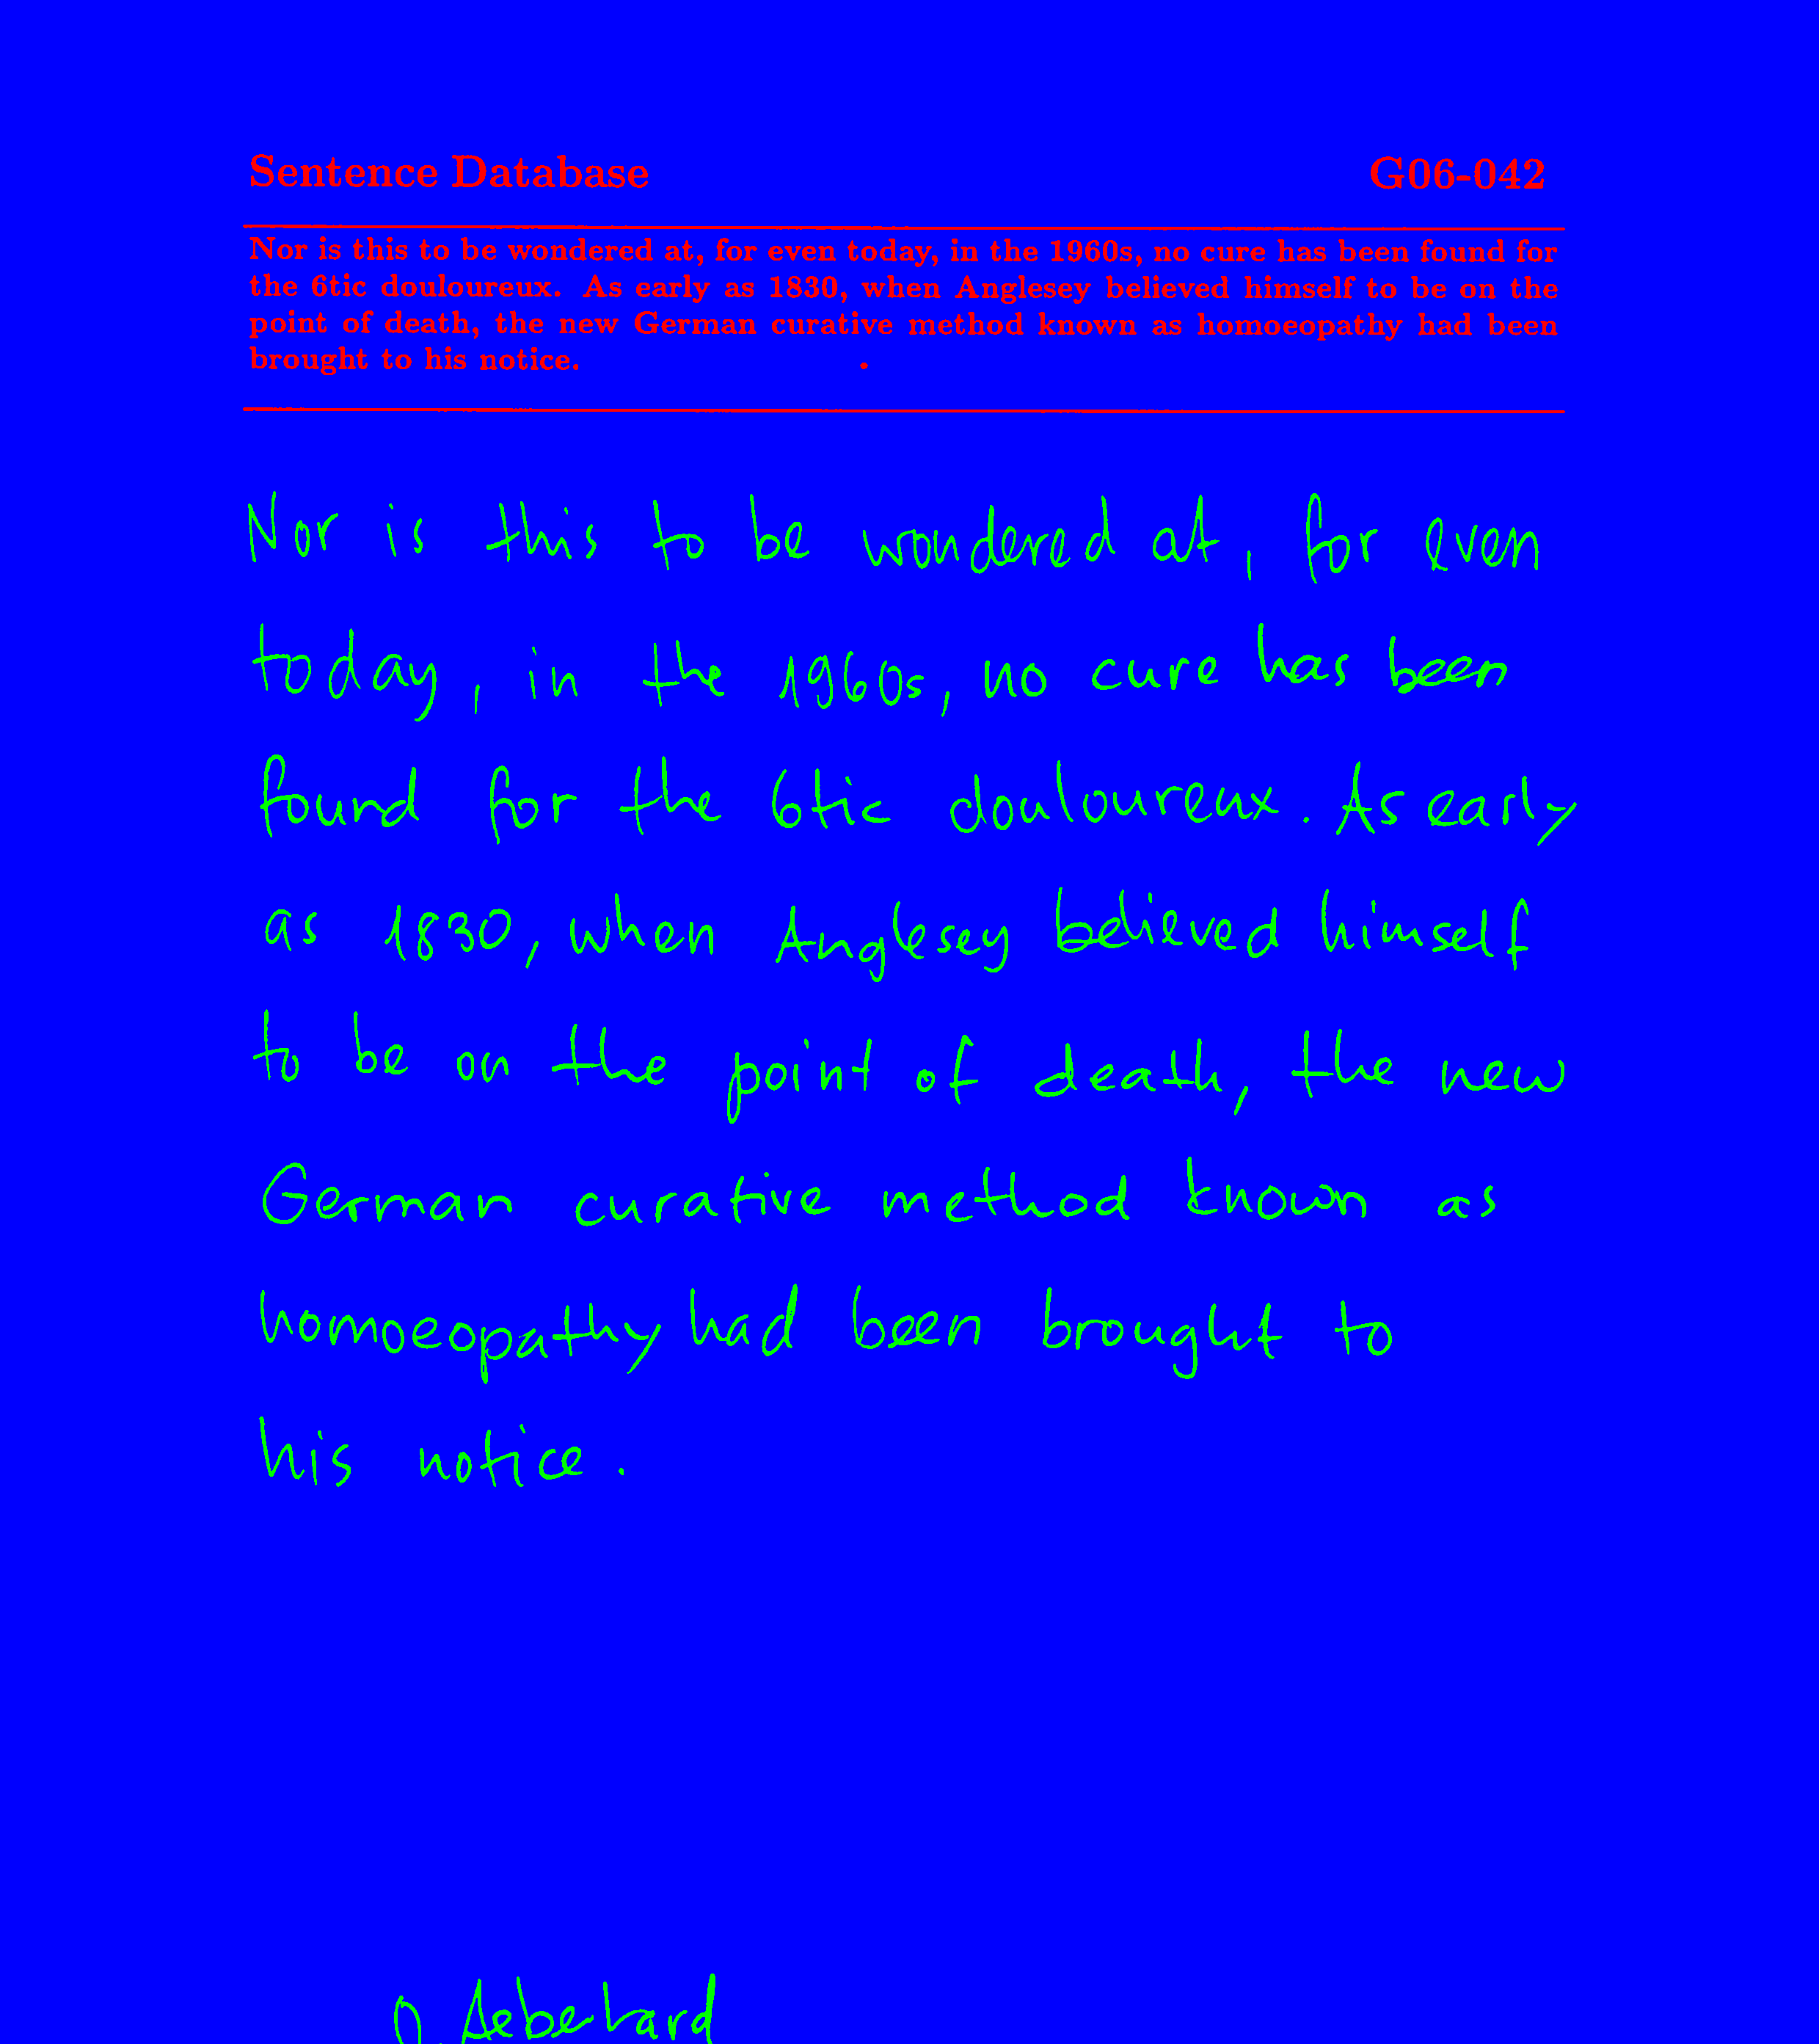 Sentence Database G06-042
Nor is this to be wondered at, for even today, in the 1960s, no cure has been found for
the 6tic douloureux. As early as 1830, when Anglesey believed himself to be on the
point of death, the new German curative method known as homoeopathy had been
brought to his notice.
Nor is this to be wondered at, for even
today, in the 1960s, no cure has been
found for the 6tic douloureux. As early
as 1830, when Anglesey believed himself
to be on the point of death, the new
German curative method known as
homoeopathy had been brought to
his notice.